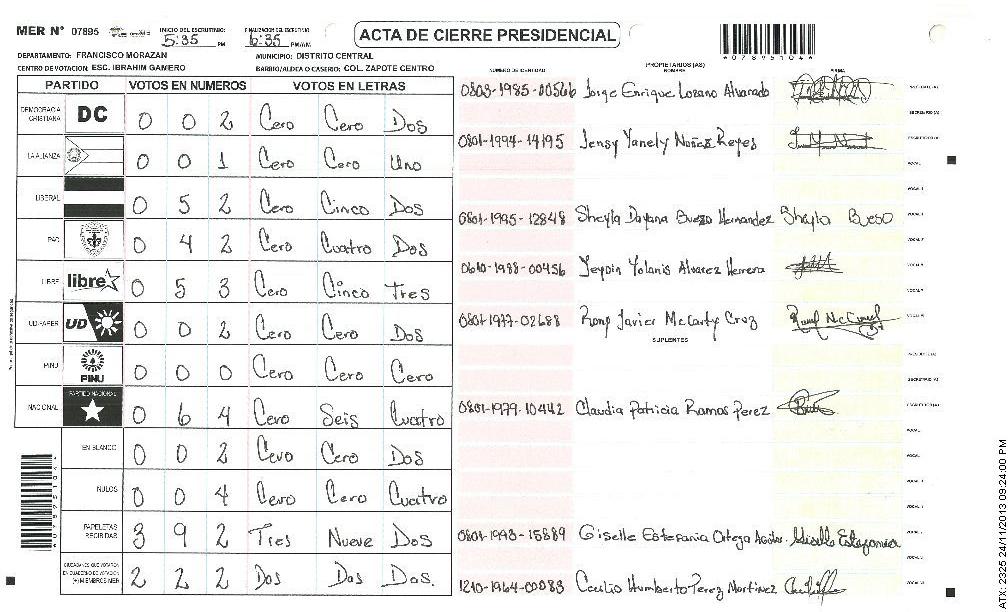 MER N° 07895 INICIO DEL ESCRUTINIO: 5:35 PM FINALIZACION DEL ESCRUTINIO: 6:35 PM/AM ACTA DE CIERRE PRESIDENCIAL
DEPARTAMENTO: FRANCISCO MORAZAN MUNICIPIO: DISTRITO CENTRAL
CENTRO DE VOTACION: ESC. IBRAHIN GAMERO BARRIO/ALDEA O CASERIO: COL. ZAPOTE CENTRO
*07895104*
PARTIDO VOTOS EN NUMEROS VOTOS EN LETRAS
DEMOCRACIA CRISTIANA DC 0 0 2 Cero Cero Dos
LA ALIANZA 0 0 1 Cero Cero Uno
LIBERAL 0 5 2 Cero Cinco Dos
PAC 0 4 2 Cero Cuatro Dos
LIBRE libre 0 5 3 Cero Cinco Tres
UD-FAPER UD 0 0 2 Cero Cero Dos
PINU PINU 0 0 0 Cero Cero Cero
NACIONAL PARTIDO NACIONAL 0 6 4 Cero Seis Cuatro
EN BLANCO 0 0 2 Cero Cero Dos
NULOS 0 0 4 Cero Cero Cuatro
PAPELETAS RECIBIDAS 3 9 2 Tres Nueve Dos
CIUDADANOS QUE VOTARON EN CUADERNO DE VOTACION (+) MIEMBROS MER 2 2 2 Dos Dos Dos.
NUMERO DE IDENTIDAD PROPIETARIOS (AS) NOMBRE FIRMA
0803-1985-00566 Jorge Enrique Lozano Alvarado
0801-1994-14195 Jensy Yanely Nuñez Reyes
0801-1995-12848 Sheyla Dayana Buezo Hernandez Sheyla Bueso
0610-1988-00456 Jeysin Yolanis Alvarez Herrera
0801-1977-02688 Rony Javier McCarty Cruz
SUPLENTES
0801-1979-10442 Claudia Patricia Ramos Perez
0801-1993-15889 Giselle Estefania Ortega Giselle Estefania
1210-1964-00083 Cecilio Humberto Perez Martinez
ATX-2325 24/11/2013 09:24:00 PM